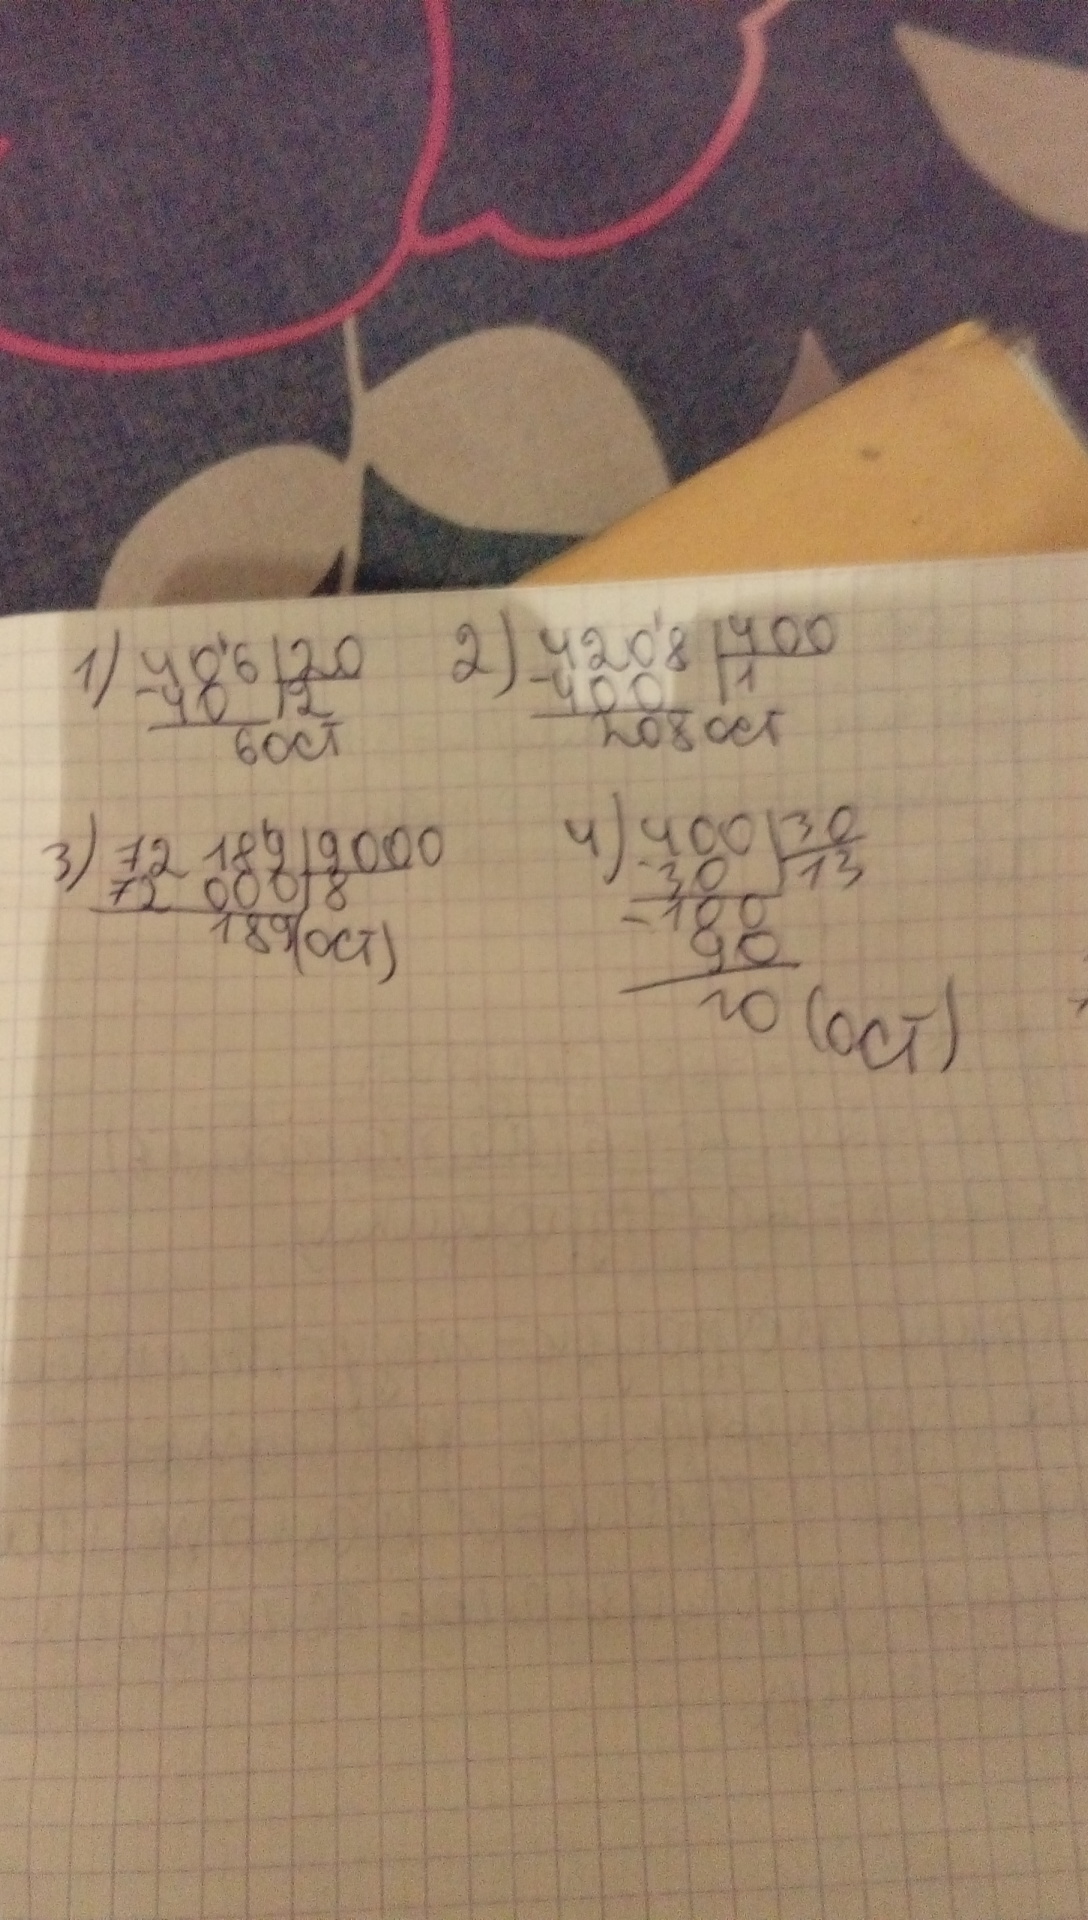 1) 40'6 |20
-40 |2
6 ост
2) 420'8 |400
-400 |1
208 ост
3) 72 18'9 |9000
72 000 |8
189 (ост)
4) 400 |30
-30 |13
-100
90
10 (ост)